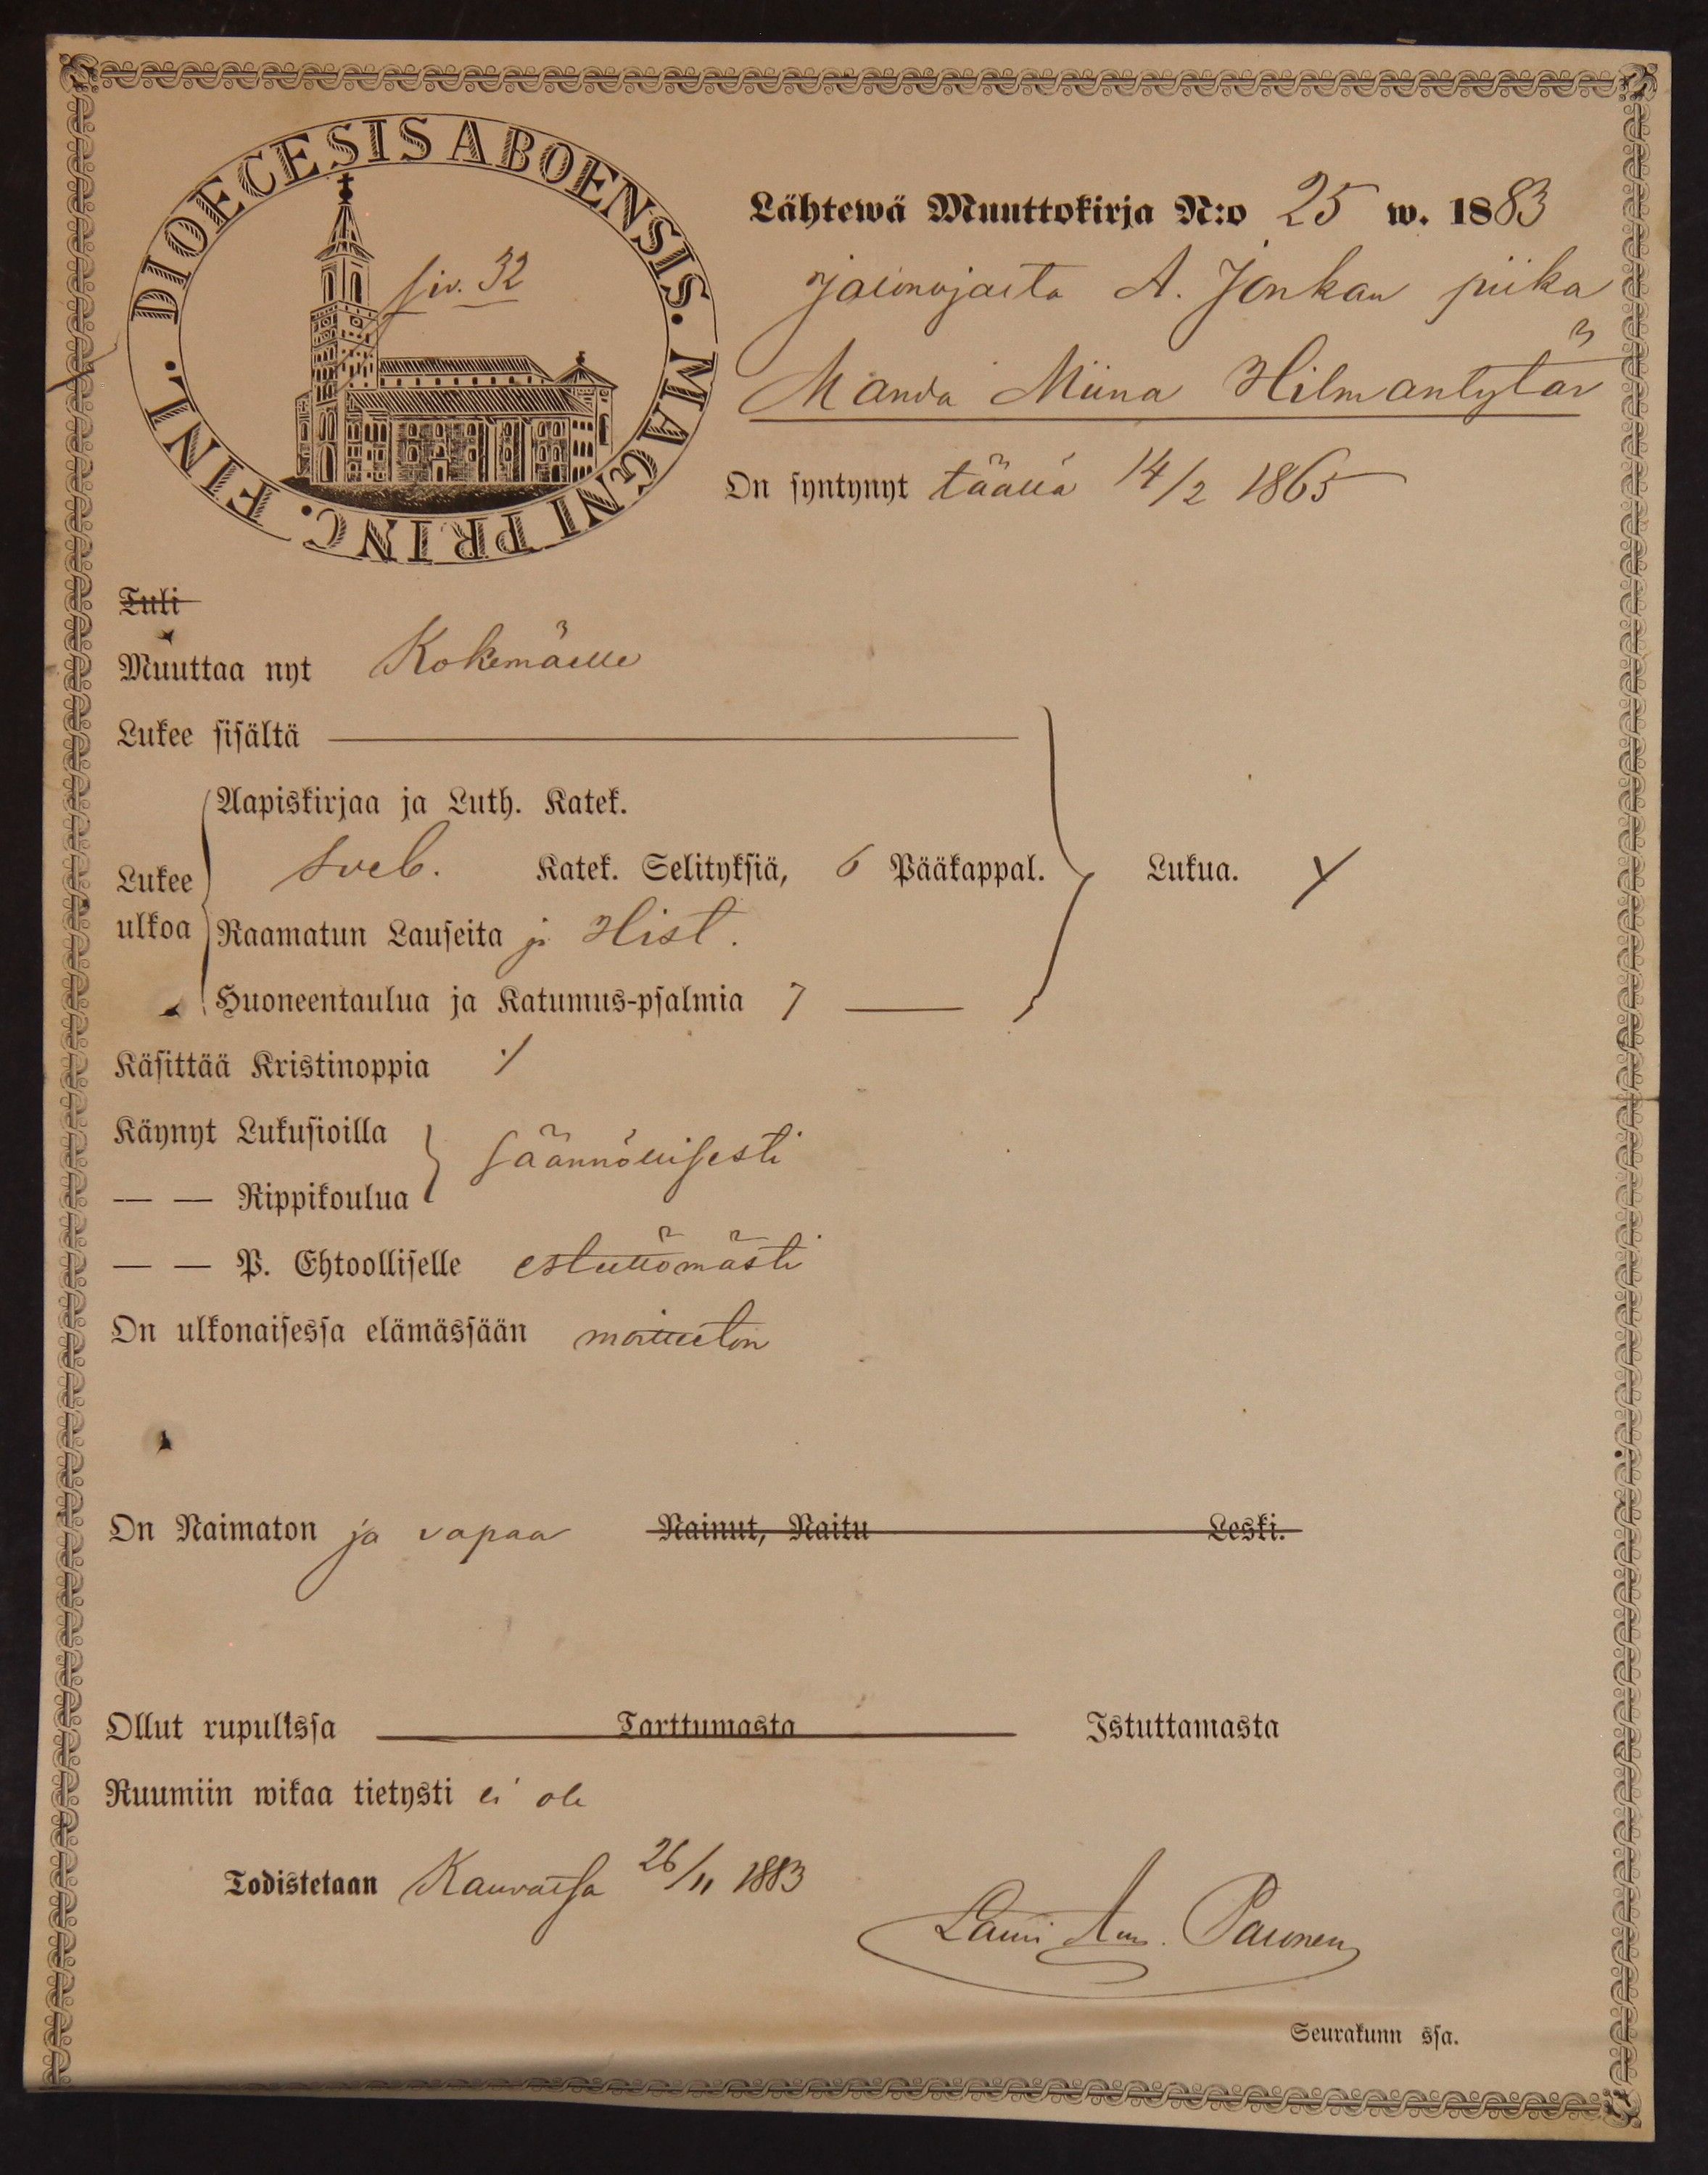 DIOECESIS ABOENSIS. MAGNI PRINC. FINL.
siv. 32
Lähtewä Muuttokirja N:o 25 w. 1883
A. Jonkan piika
Manda Miina Hilmantytär
On syntynyt täällä 14/2 1865
Tuli
Muuttaa nyt Kokemäelle
Lukee sisältä
Aapiskirjaa ja Luth. Katek.
Lukee ulkoa
Sveb. Katek. Selityksiä, 6 Pääkappal.
Lukua.
Raamatun Lauseita ja Hist.
Huoneentaulua ja Katumus-psalmia 7
Käsittää Kristinoppia
Käynyt Lukusioilla
säännöllisesti
— — Rippikoulua
— — P. Ehtoolliselle esteettömästi
On ulkonaisessa elämässään moitteeton
On Naimaton ja vapaa Nainut, Naitu Leski.
Ollut rupulissa Tarttumasta Istuttamasta
Ruumiin wikaa tietysti ei ole
Todistetaan Kauvatsa 26/11 1883
Lauri Paunen
Seurakunn ssa.